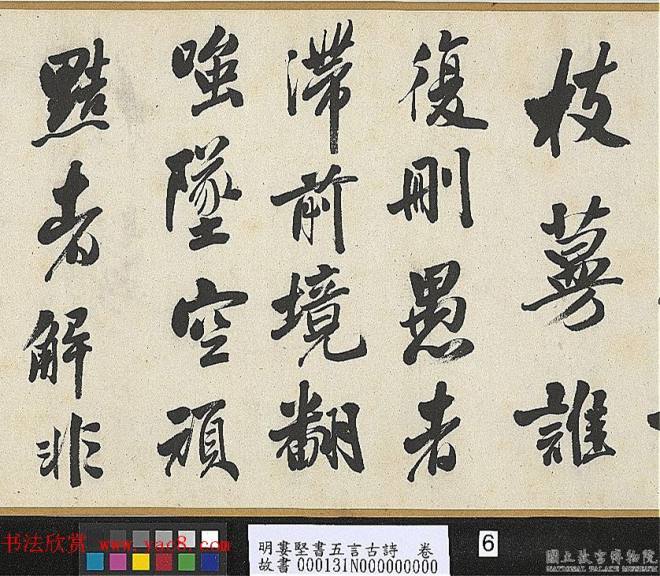 枝蔓誰
復刪愚者
滯前境翻
嗤墜空頑
黠者解非
书法欣赏
www.yac8.com
明婁堅書五言古詩 卷
故書 000131N000000000
6
國立故宮博物院
NATIONAL PALACE MUSEUM